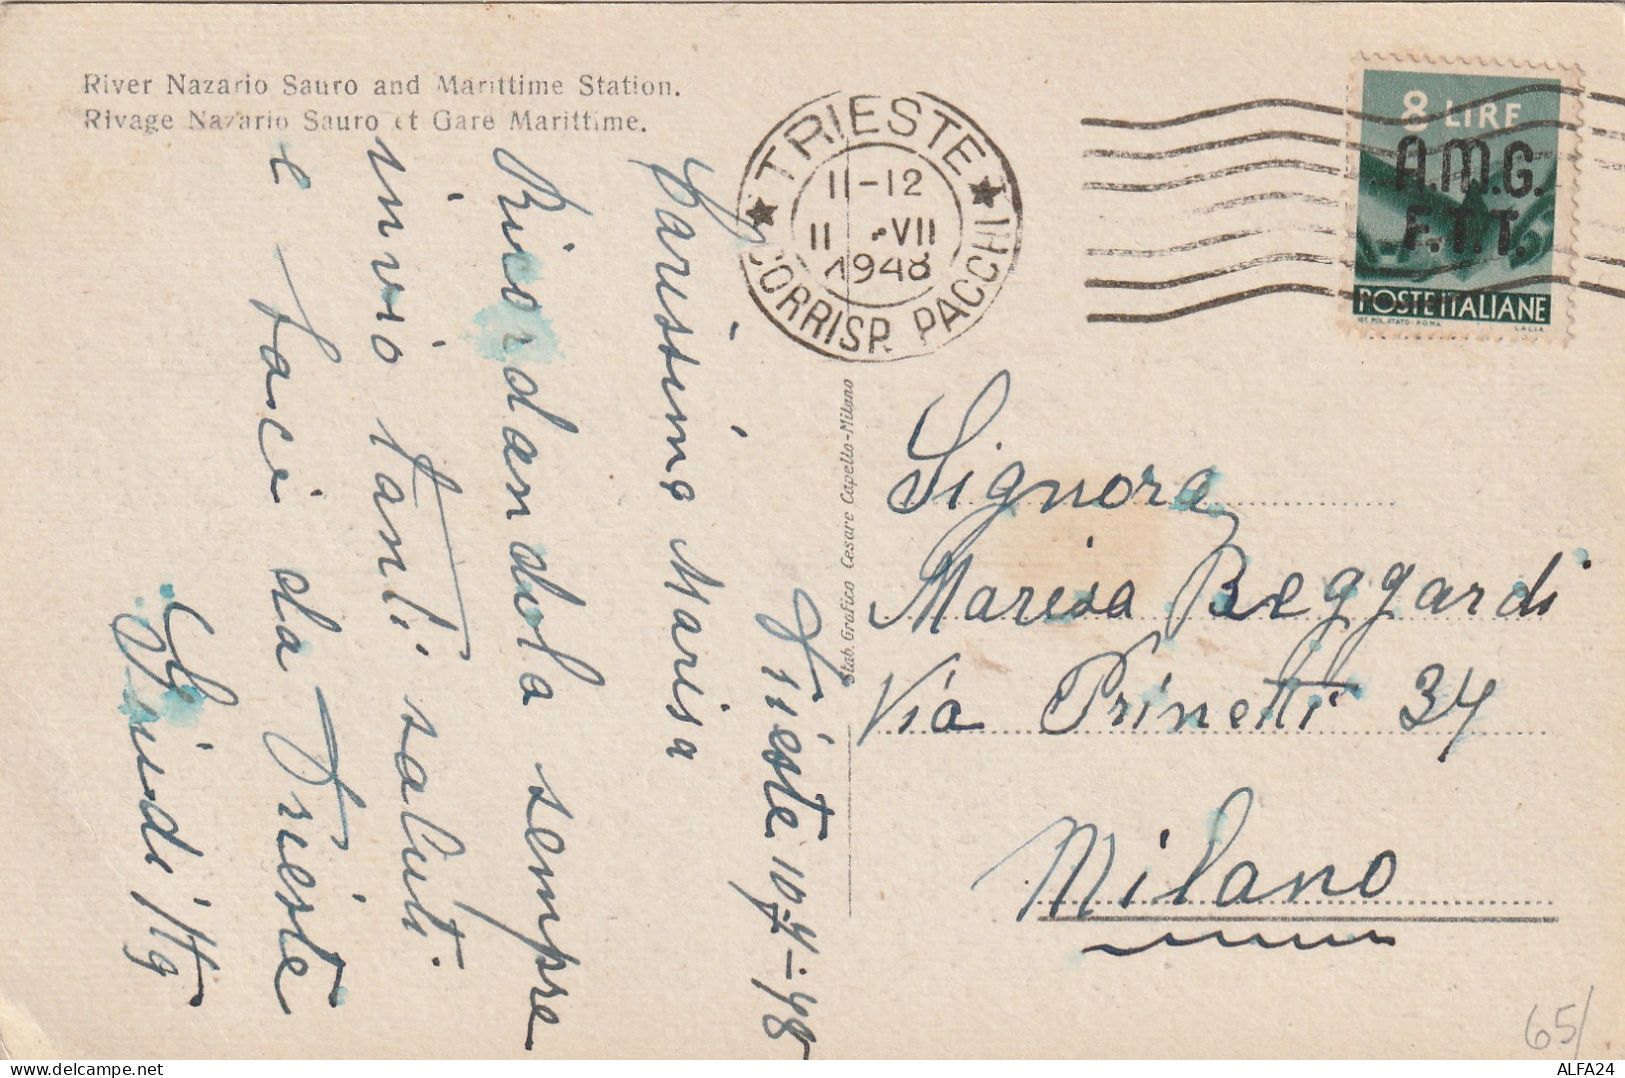 River Nazario Sauro and Marittime Station.
Rivage Nazario Sauro et Gare Marittime.
TRIESTE
11-12
11 VII
1948
CORRISP. PACCHI
8 LIRE
A.M.G.
F.T.T.
POSTE ITALIANE
IST. POL. STATO-ROMA
Trieste 10-7-48
Carissima Marisa
Ricordandola sempre
invio tanti saluti
e baci da Trieste
Stab. Grafico Cesare Capello-Milano
Signora
Marisa Beggardi
Via Prinetti 34
Milano
65/
ALFA24